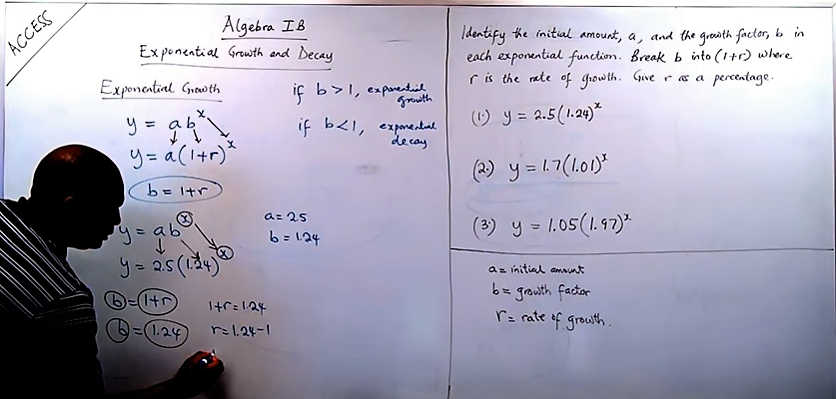 ACCESS
Algebra IB
Exponential Growth and Decay
Exponential Growth
y = ab^x
y = a(1+r)^x
b = 1+r
y = ab^x
y = 2.5(1.24)^x
b = 1+r
b = 1.24
if b > 1, exponential
growth
if b < 1, exponential
decay
a = 2.5
b = 1.24
1+r = 1.24
r = 1.24-1
Identify the initial amount, a, and the growth factor, b in
each exponential function. Break b into (1+r) where
r is the rate of growth. Give r as a percentage.
(1.) y = 2.5(1.24)^x
(2.) y = 1.7(1.01)^x
(3.) y = 1.05(1.97)^x
a = initial amount
b = growth factor
r = rate of growth.